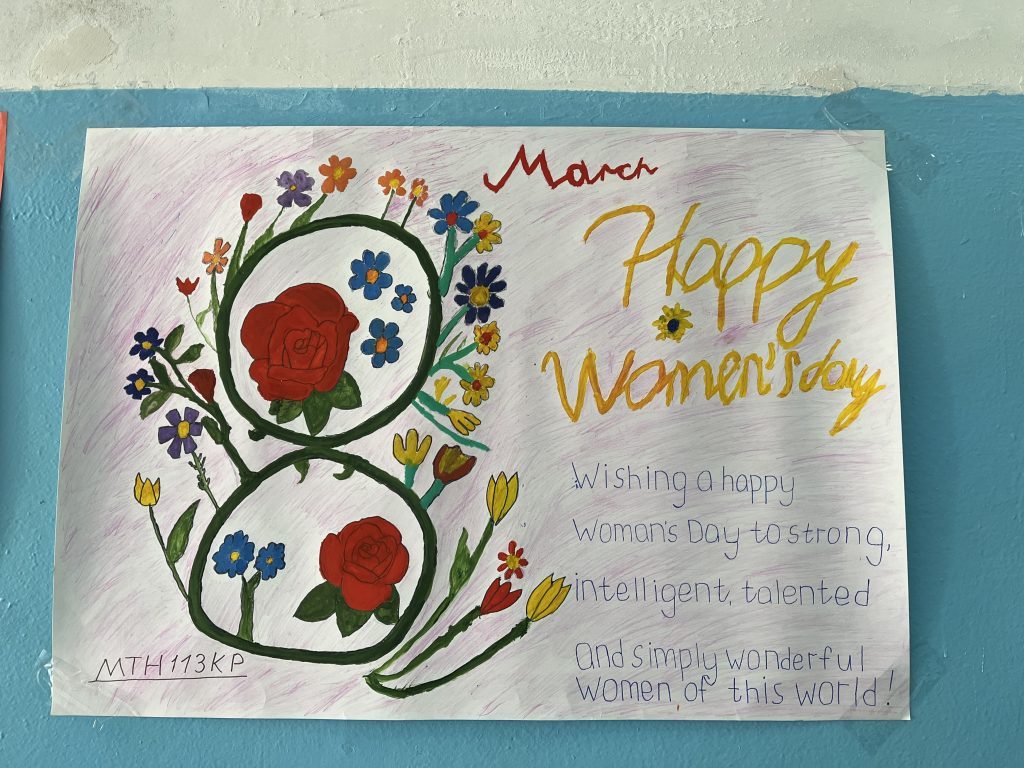 March
8
Happy
Women's day
Wishing a happy
Woman's Day to strong,
intelligent, talented
and simply wonderful
women of this world!
MTH113KP